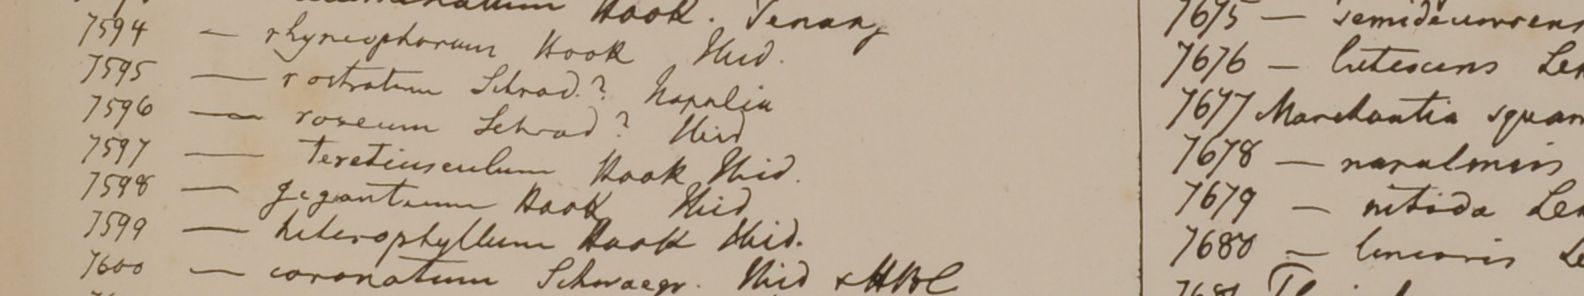 Hook. Penang
7594 — rhyncophorum Hook Ibid.
7595 — rostratum Schrad.? Napalia
7596 — roseum Schrad? Ibid
7597 — teretiusculum Hook Ibid.
7598 — giganteum Hook Ibid
7599 — heterophyllum Hook Ibid.
7600 — coronatum Schwaegr. Ibid & HBC
7675 — semidecurrens
7676 — lutescens Le
7677 Marchantia squam
7678 — napalensis
7679 — nitida Le
7680 — linearis Le
7681